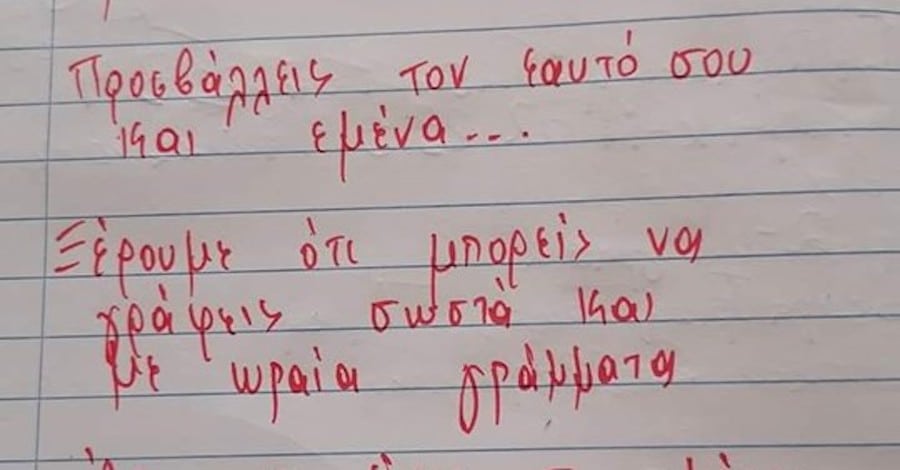 Προσβάλλεις τον εαυτό σου
και εμένα...
Ξέρουμε ότι μπορείς να
γράψεις σωστά και
με ωραία γράμματα